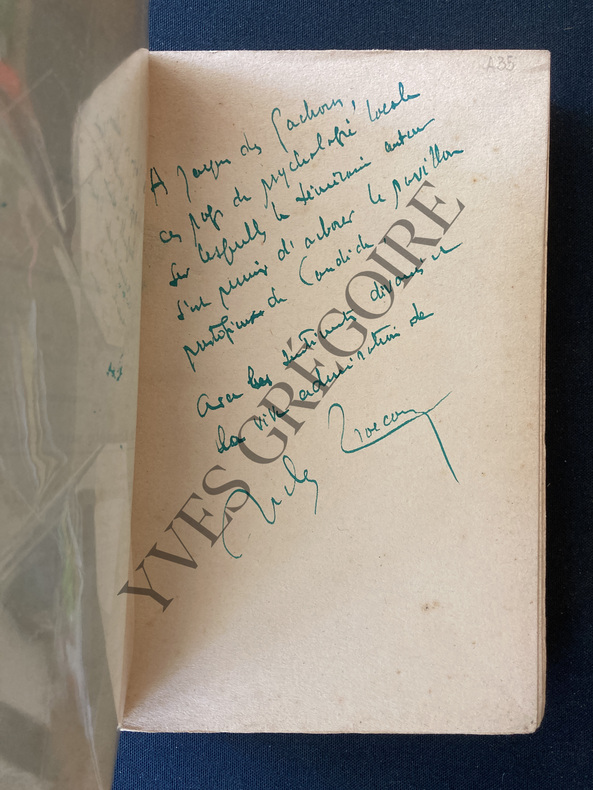 A35
A Jacques des Gachons,
ces pages de psychologie locale
sur lesquelles le téméraire auteur
s'est permis d'arborer le pavillon
de Candide
Avec les sentiments dévoués et
la vive admiration de
YVES GRÉGOIRE